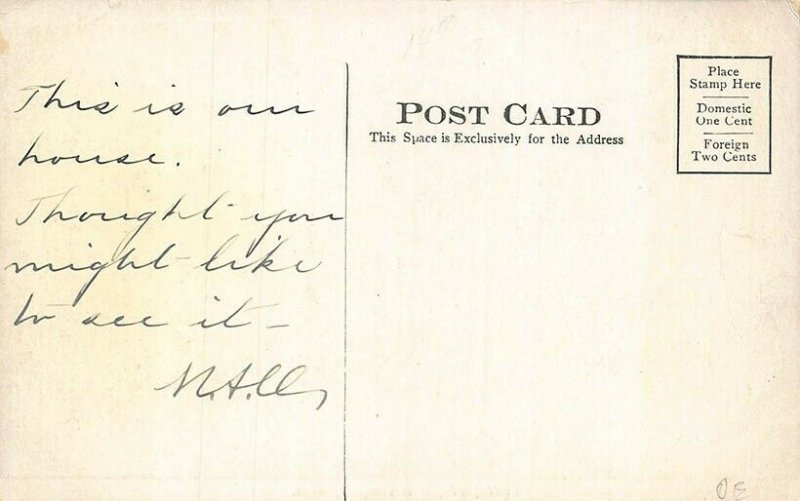 This is our
house.
Thought you
might like
to see it –
POST CARD
This Space is Exclusively for the Address
Place
Stamp Here
Domestic
One Cent
Foreign
Two Cents